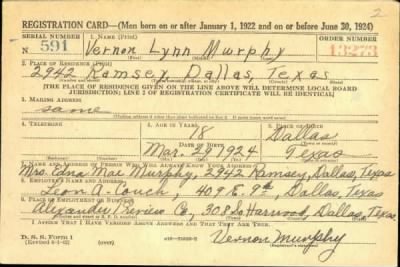 2
REGISTRATION CARD—(Men born on or after January 1, 1922 and on or before June 30, 1924)
SERIAL NUMBER
1. NAME (Print)
ORDER NUMBER
N 591
Vernon Lynn Murphy
13273
(First) (Middle) (Last)
2. PLACE OF RESIDENCE (Print)
2942 Ramsey Dallas, Texas
[THE PLACE OF RESIDENCE GIVEN ON THE LINE ABOVE WILL DETERMINE LOCAL BOARD
JURISDICTION; LINE 2 OF REGISTRATION CERTIFICATE WILL BE IDENTICAL]
3. MAILING ADDRESS
same
4. TELEPHONE
18
Dallas
DATE OF BIRTH
Mar. 29 1924
Texas
7. NAME AND ADDRESS OF PERSON WHO WILL ALWAYS KNOW YOUR ADDRESS
Mrs. Edna Mae Murphy, 2942 Ramsey, Dallas, Texas
8. EMPLOYER'S NAME AND ADDRESS
Leon A. Couch, 409 E. 9th, Dallas, Texas
9. PLACE OF EMPLOYMENT OR BUSINESS
Alexander Preview Co, 308 S. Harwood, Dallas, Texas.
I AFFIRM THAT I HAVE VERIFIED ABOVE ANSWERS AND THAT THEY ARE TRUE.
D. S. S. Form 1
(Revised 6-1-42)
Vernon Murphy